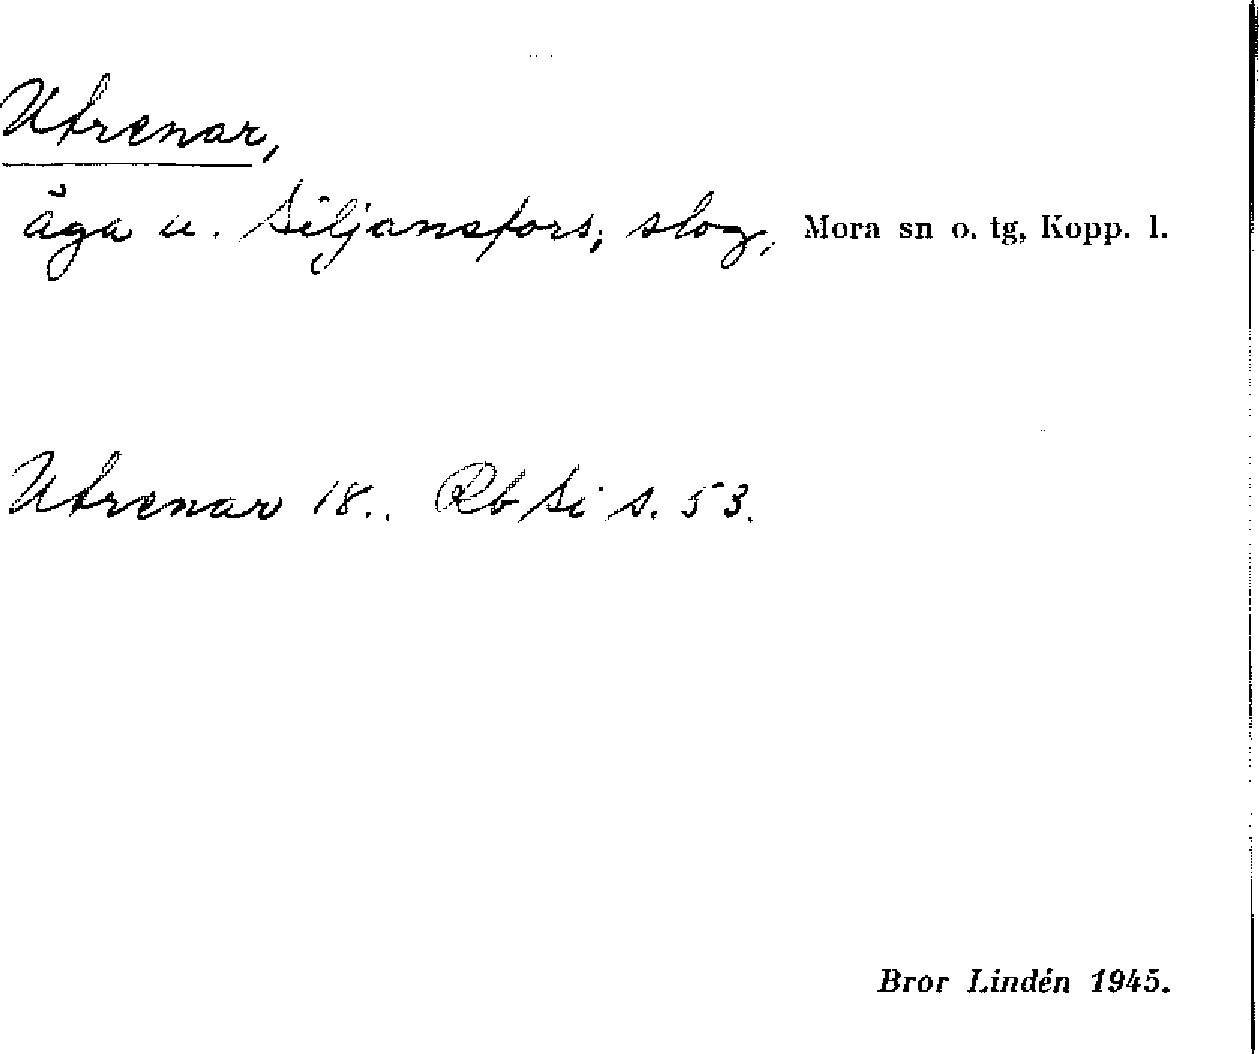 Utrenar,
äga u. Siljansfors, slog, Mora sn o. tg, Kopp. l.
Utrenar 18.. Rb Si s. 53.
Bror Lindén 1945.